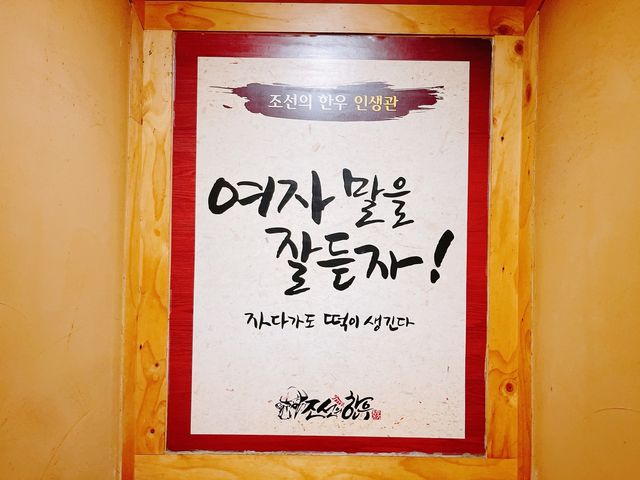 조선의 한우 인생관
여자 말을
잘듣자!
자다가도 떡이 생긴다
조선의한우